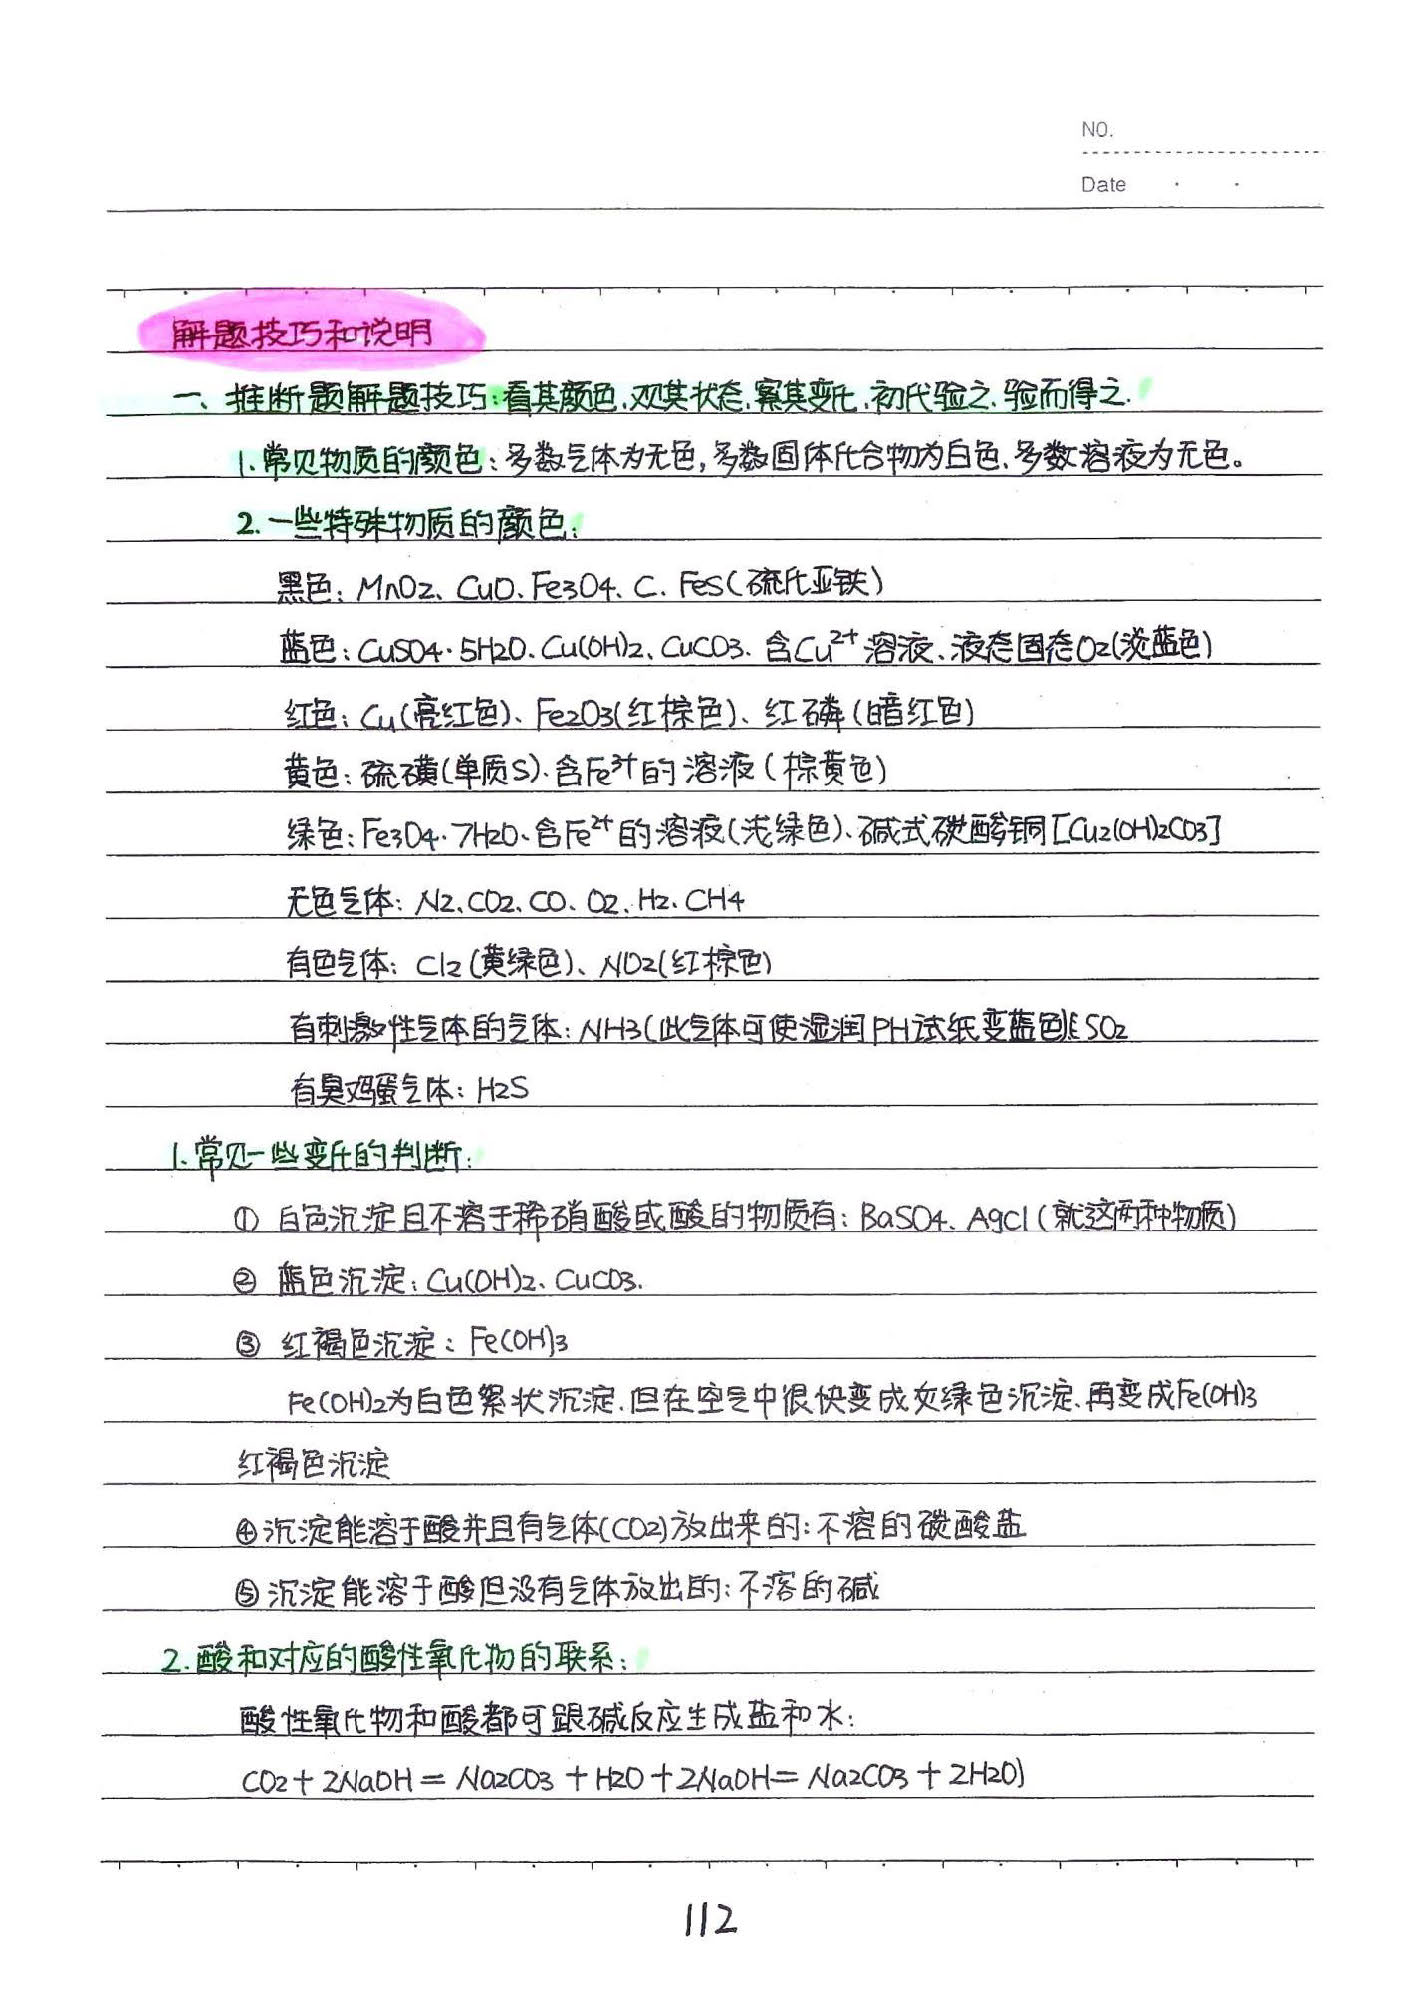 NO.
Date
解题技巧和说明
一、推断题解题技巧:看其颜色、观其状态、察其变化、初代验之、验而得之.
1.常见物质的颜色:多数气体为无色,多数固体化合物为白色、多数溶液为无色。
2.一些特殊物质的颜色:
黑色:MnO2、CuO、Fe3O4、C、FeS(硫化亚铁)
蓝色:CuSO4·5H2O、Cu(OH)2、CuCO3、含Cu²⁺溶液、液态固态O2(淡蓝色)
红色:Cu(亮红色)、Fe2O3(红棕色)、红磷(暗红色)
黄色:硫磺(单质S)、含Fe³⁺的溶液(棕黄色)
绿色:Fe3O4·7H2O、含Fe²⁺的溶液(浅绿色)、碱式碳酸铜[Cu2(OH)2CO3]
无色气体:N2、CO2、CO、O2、H2、CH4
有色气体:Cl2(黄绿色)、NO2(红棕色)
有刺激性气体的气体:NH3(此气体可使湿润PH试纸变蓝色)、SO2
有臭鸡蛋气体:H2S
1.常见一些变化的判断:
① 白色沉淀且不溶于稀硝酸或酸的物质有:BaSO4、AgCl(就这两种物质)
② 蓝色沉淀:Cu(OH)2、CuCO3.
③ 红褐色沉淀:Fe(OH)3
Fe(OH)2为白色絮状沉淀.但在空气中很快变成灰绿色沉淀、再变成Fe(OH)3
红褐色沉淀
④沉淀能溶于酸并且有气体(CO2)放出来的:不溶的碳酸盐
⑤沉淀能溶于酸但没有气体放出的:不溶的碱
2.酸和对应的酸性氧化物的联系:
酸性氧化物和酸都可跟碱反应生成盐和水:
CO2+2NaOH=Na2CO3+H2O+2NaOH=Na2CO3+2H2O)
112